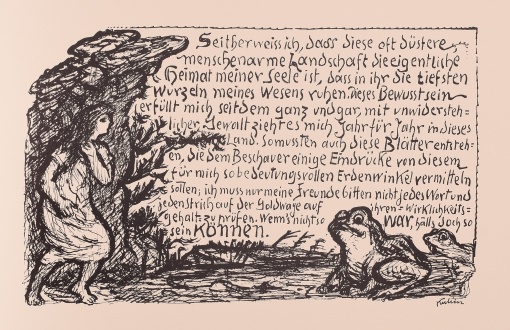 Seither weiss ich, dass diese oft düstere,
menschenarme Landschaft die eigentliche
Heimat meiner Seele ist, dass in ihr die tiefsten
Wurzeln meines Wesens ruhen. Dieses Bewusstsein
erfüllt mich seitdem ganz und gar, mit unwidersteh-
licher Gewalt zieht es mich Jahr für Jahr in dieses
Land. So mussten auch diese Blätter entsteh-
en, die dem Beschauer einige Eindrücke von diesem
für mich so bedeutungsvollen Erdenwinkel vermitteln
sollen; ich muss nur meine Freunde bitten nicht jedes Wort und
jeden Strich auf der Goldwage auf ihren Wirklichkeits-
gehalt zu prüfen. Wenns nicht so war, hätts doch so
sein können.
Kubin